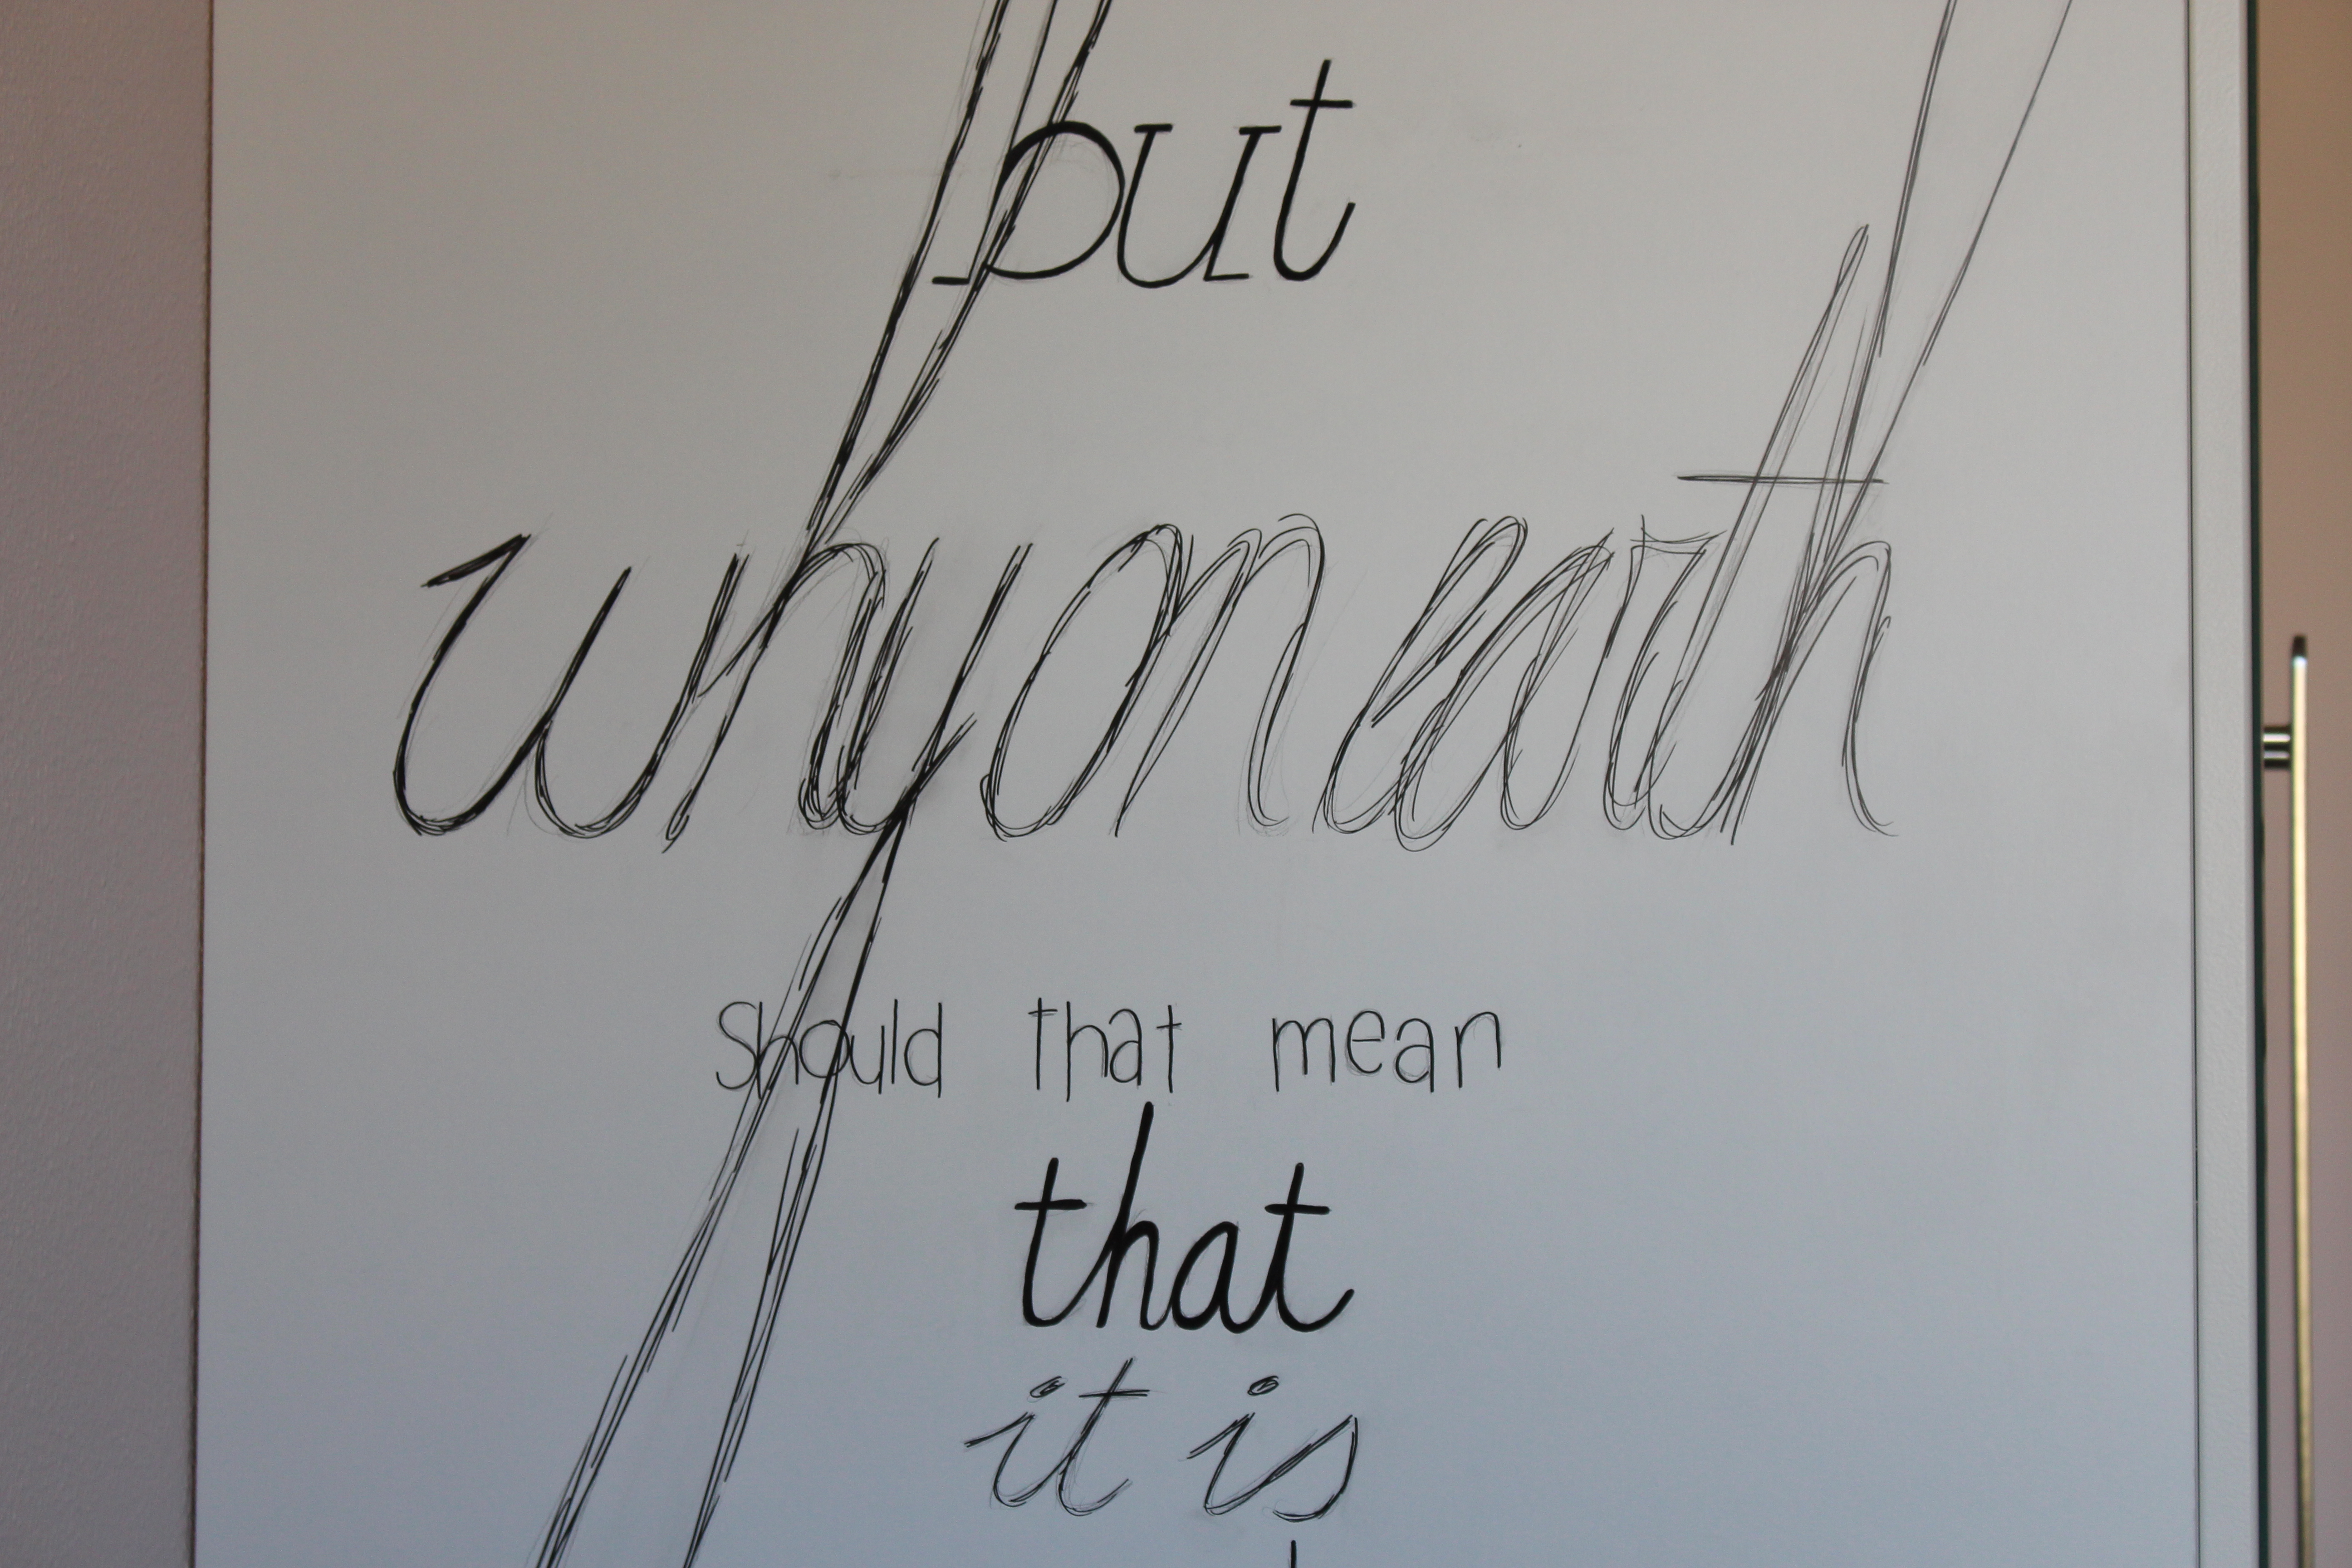 but
why on earth
Should that mean
that
it is